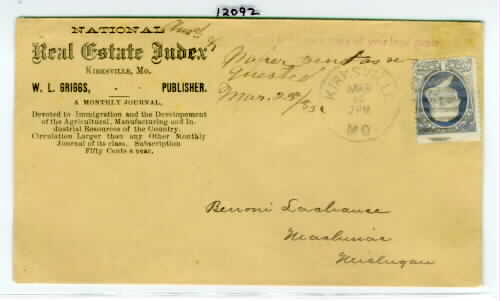 12092
NATIONAL
Real Estate Index
KIRKSVILLE, MO.
W. L. GRIGGS, - - PUBLISHER.
A MONTHLY JOURNAL,
Devoted to Immigration and the Developement
of the Agricultural, Manufacturing and In-
dustrial Resources of the Country.
Circulation Larger than any Other Monthly
Journal of its class. Subscription
Fifty Cents a year.
Ansd
Paper sent as re
quested
Mar. 28/82
KIRKSVILLE
MAR
2PM
MO
of your local paper
Benoni Lachance
Mackinac
Michigan